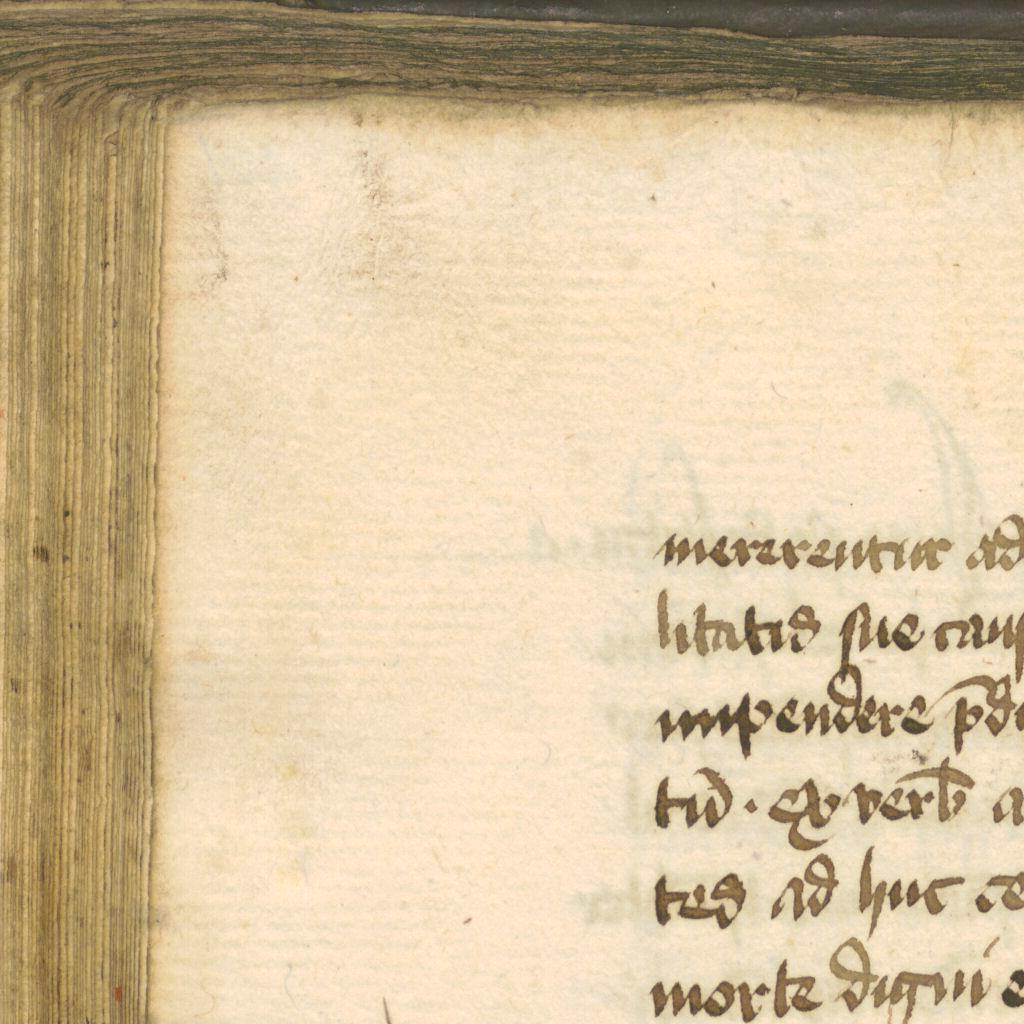 mererentur ad
litatis sue caus
impendere p̄d
tu᷒. ex verb̄ a
tes ad huc ce
morte digni e